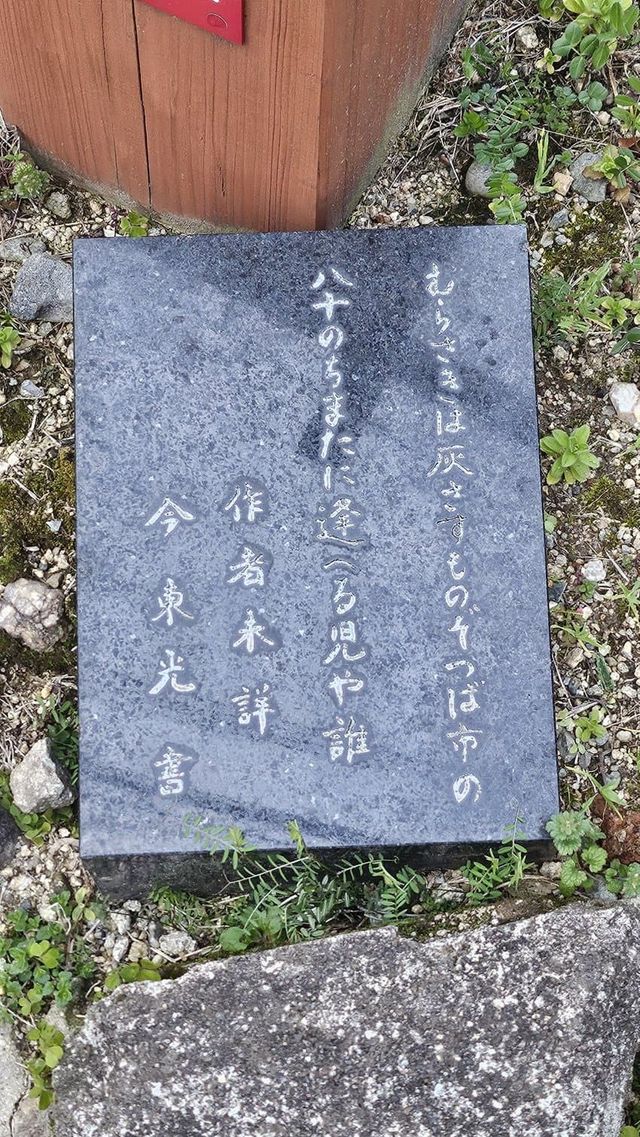 むらさきは灰さすものぞつば市の
八十のちまたに逢へる児や誰
作者未詳
今東光書